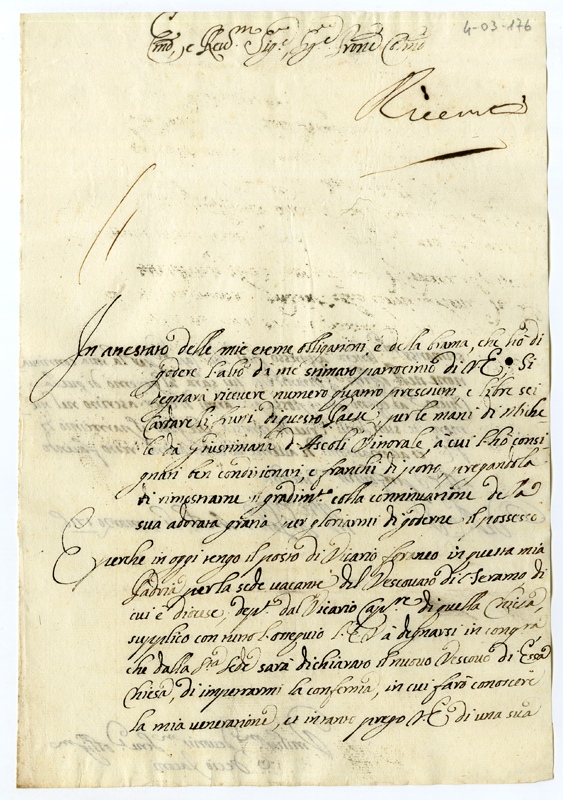 4-03-176
Emo, e Revmo Sige Sige Prone Colmo
Ricevuta
In attestato delle mie eterne obligationi, e della brama, che hò di
godere l'alto da me stimato patrocinio di V.E. Si
degnarà ricevere numero quattro presciutti e libre sei
tartare frutti di questo Paese, per le mani di Miche-
le da Giustimana d'Ascoli Vitturale, a cui l'hò consi-
gnati ben conditionati, e franchi di porto, pregandola
di rimostrarne il gradimto colla continuatione della
sua adorata gratia per gloriarmi di goderne il possesso
E perche in oggi tengo il posto di Vicario foraneo in questa mia
Padria per la sede vacante del Vescovato di Teramo di
cui è diocese, depto dal Vicario Capre di quella Chiesa,
supplico con tutto l'ossequio l'E.V. à degnarsi in congra
che dalla Sta Sede sarà dichiarato il nuovo Vescovo di Essa
Chiesa, di impetrarmi la conferma, in cui farò conoscere
la mia veneratione, et intanto prego V.E. di una sua